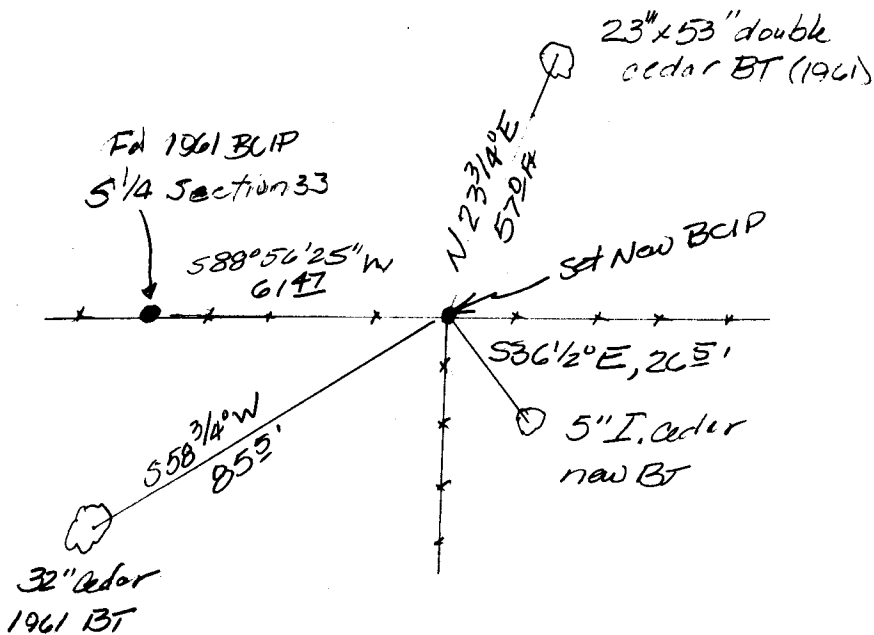 23"x53" double
cedar BT (1961)
Fd 1961 BCIP
S 1/4 Section 33
N 23 3/4° E
57.0 ft
Set New BCIP
S88°56'25" W
61.47
S36 1/2° E, 26.5'
5" I. cedar
new BT
S58 3/4° W
85.5'
32" cedar
1961 BT